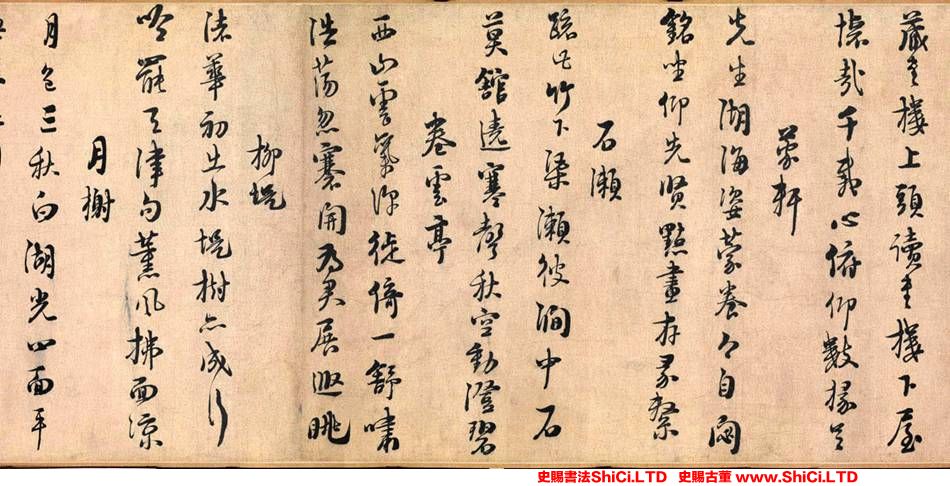 藏書樓上頭讀書樓下屋
懷哉千載心俯仰數椽足
蒙軒
先生湖海姿蒙養今自閟
銘坐仰先賢點畫存彖繫
石瀨
疏此竹下渠瀨彼澗中石
莫館遶寒聲秋空動澄碧
卷雲亭
西山雲氣深徙倚一舒嘯
浩蕩忽褰開為君展遐眺
柳堤
渚華初出水堤樹亦成行
吟罷天津句薰風拂面涼
月榭
月色三秋白湖光四面平
史賜書法ShiCi.LTD 史賜古董 www.ShiCi.LTD